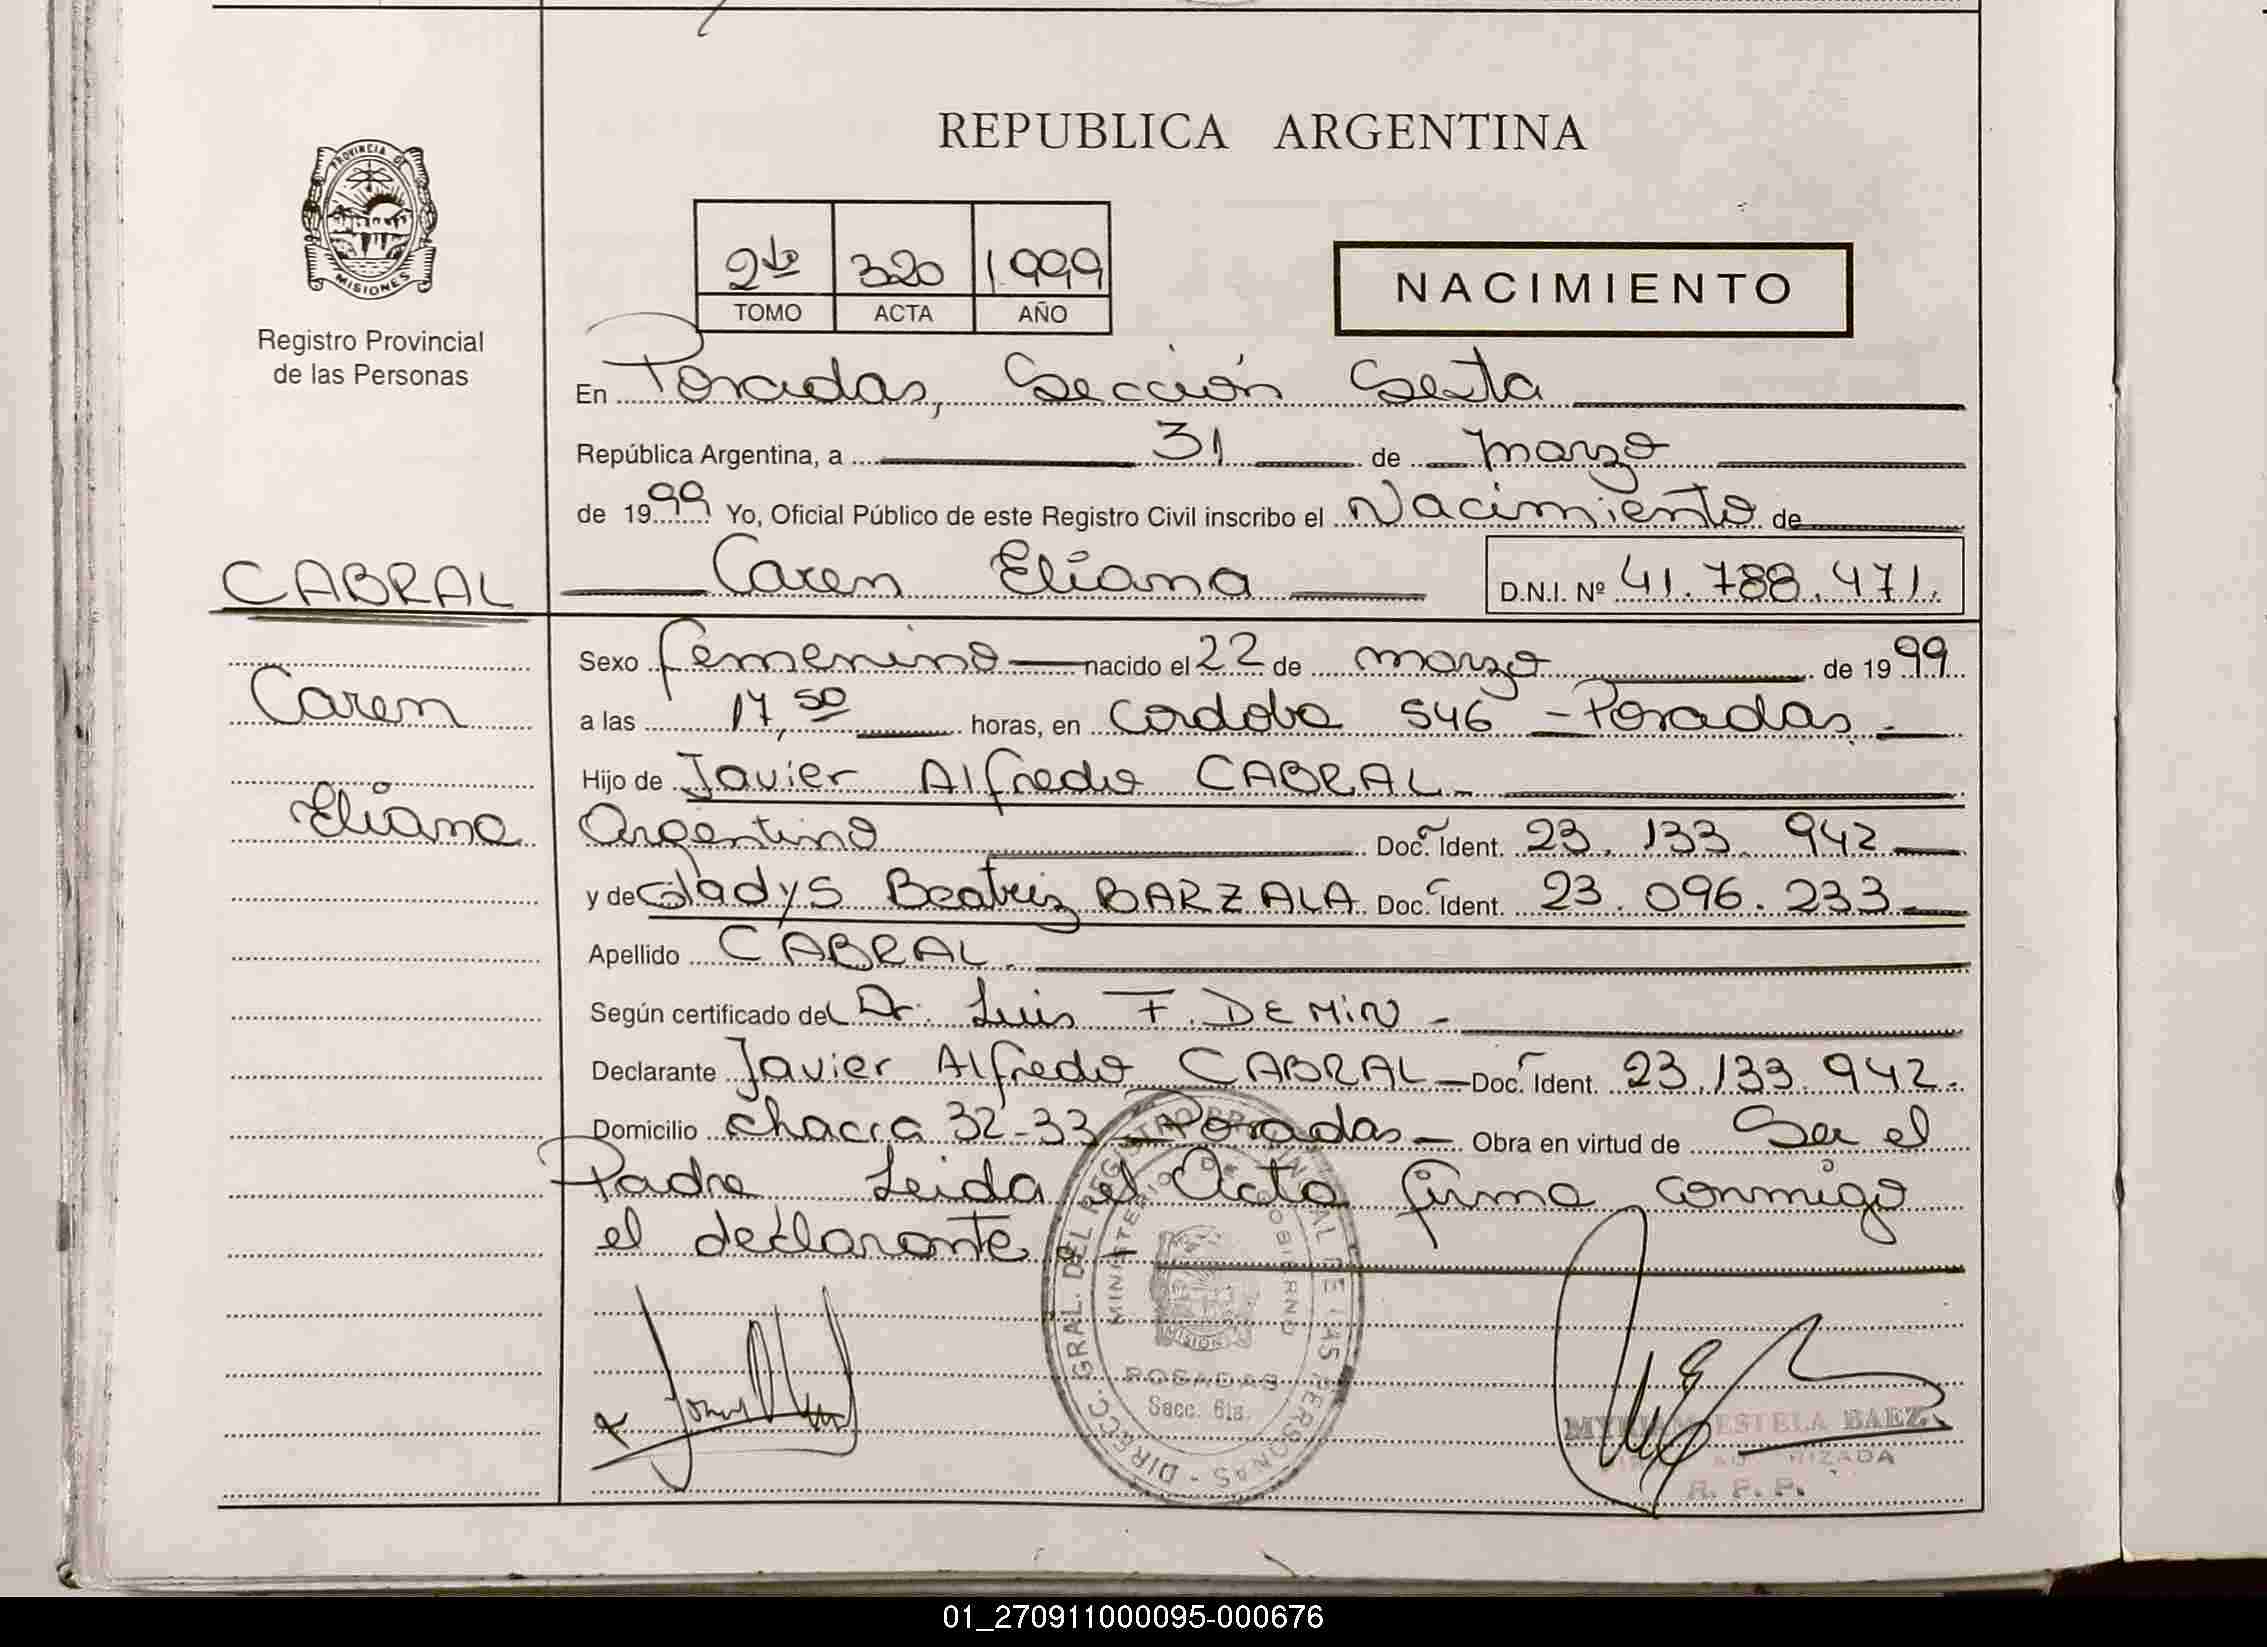 REPUBLICA ARGENTINA
PROVINCIA DE
MISIONES
Registro Provincial
de las Personas
2do 320 1.999
TOMO ACTA AÑO
NACIMIENTO
En Posadas, Sección Sexta
República Argentina, a 31 de marzo
de 1999 Yo, Oficial Público de este Registro Civil inscribo el Nacimiento de
CABRAL
Caren Eliana D.N.I. Nº 41.788.471.
Sexo femenino nacido el 22 de marzo de 1999
Caren
a las 17,50 horas, en Cordoba 546 - Posadas. -
Hijo de Javier Alfredo CABRAL -
Eliana
Argentino Doc. Ident. 23.133.942
y de Gladys Beatriz BARZALA Doc. Ident. 23.096.233
Apellido CABRAL.
Según certificado del Dr. Luis F. DEMIN -
Declarante Javier Alfredo CABRAL - Doc. Ident. 23.133.942.
Domicilio chacra 32-33 - Posadas - Obra en virtud de Ser el
Padre Leida el Acta firma conmigo
el declarante. -
DIRECC. GRAL. DEL REGISTRO PROVINCIAL DE LAS PERSONAS -
MINISTERIO DE GOBIERNO
MISIONES
POSADAS
Secc. 6ta.
MYRIAM ESTELA BAEZ
R. P. P.
01_270911000095-000676